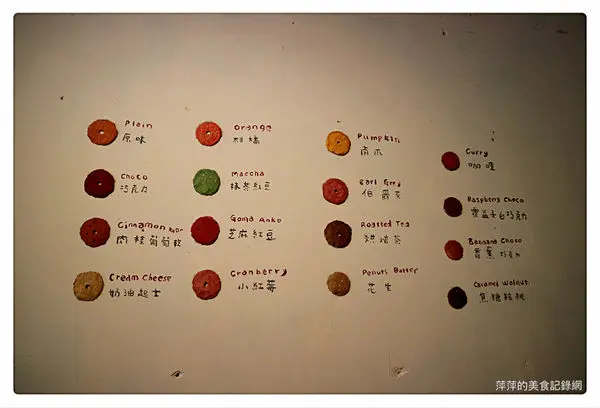 Plain
原味
Choco
巧克力
Cinnamon
肉桂葡萄乾
Cream Cheese
奶油起士
Orange
柑橘
Maccha
抹茶紅豆
Goma Anko
芝麻紅豆
Cranberry
小紅莓
Pumpkin
南瓜
Earl Grey
伯爵茶
Roasted Tea
烘焙茶
Peanuts Butter
花生
Curry
咖哩
Raspberry Choco
覆盆子白巧克力
Banana Choco
香蕉巧克力
Caramel Walnut
焦糖核桃
萍萍的美食記錄網